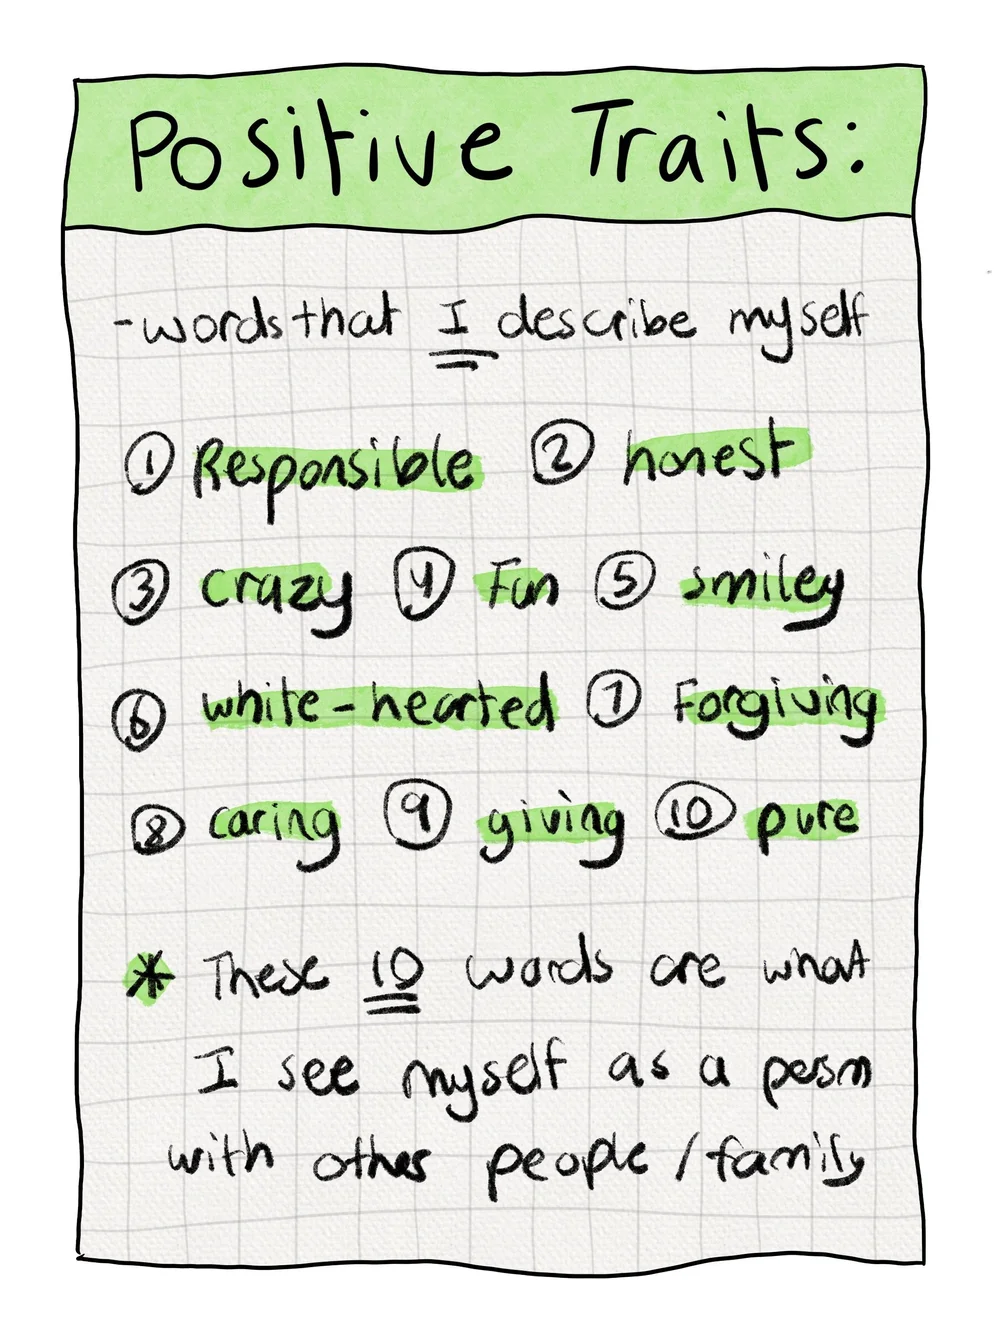 Positive Traits:
- words that I describe myself
① Responsible ② honest
③ crazy ④ Fun ⑤ smiley
⑥ white-hearted ⑦ Forgiving
⑧ caring ⑨ giving ⑩ pure
* These 10 words are what
I see myself as a person
with other people / family